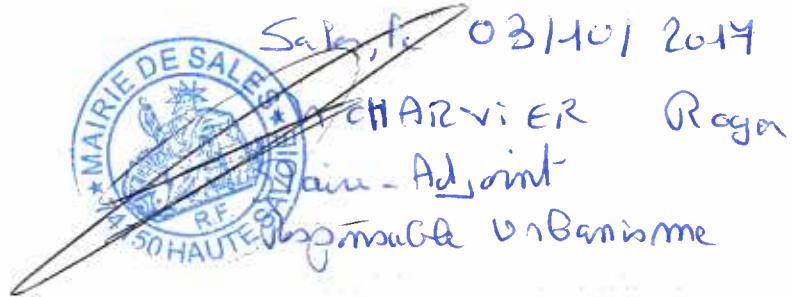 Sales, le 03/10/2017
CHARVIER Roger
Maire-Adjoint
Responsable Urbanisme
MAIRIE DE SALES
R.F.
74150 HAUTE SAVOIE